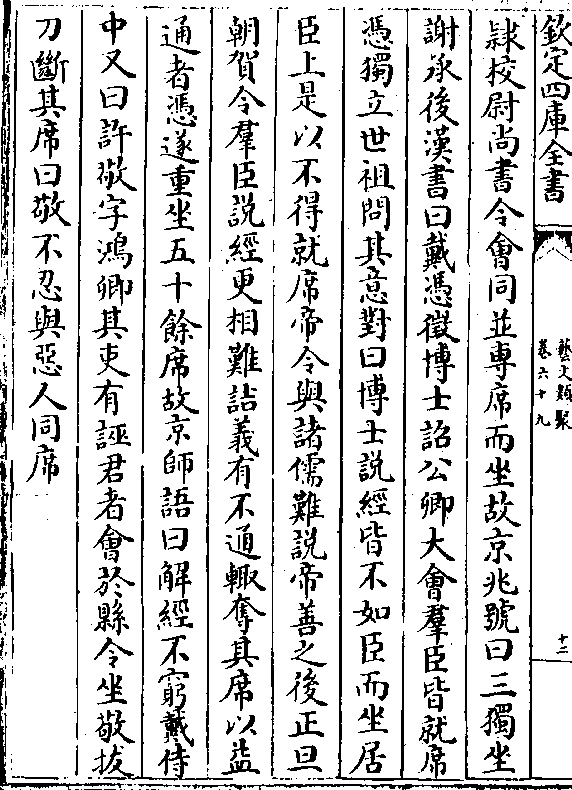 欽定四庫全書
藝文類聚
卷六十九
十二
隷校尉尚書令會同並専席而坐故京兆號曰三獨坐
謝承後漢書曰戴憑徴博士詔公卿大會羣臣皆就席
憑獨立世祖問其意對曰博士説經皆不如臣而坐居
臣上是以不得就席帝令與諸儒難説帝善之後正旦
朝賀令羣臣説經更相難詰義有不通輙奪其席以益
通者憑遂重坐五十餘席故京師語曰解經不窮戴侍
中又曰許敬字鴻卿其吏有誣君者會於縣令坐敬拔
刀斷其席曰敬不忍與惡人同席